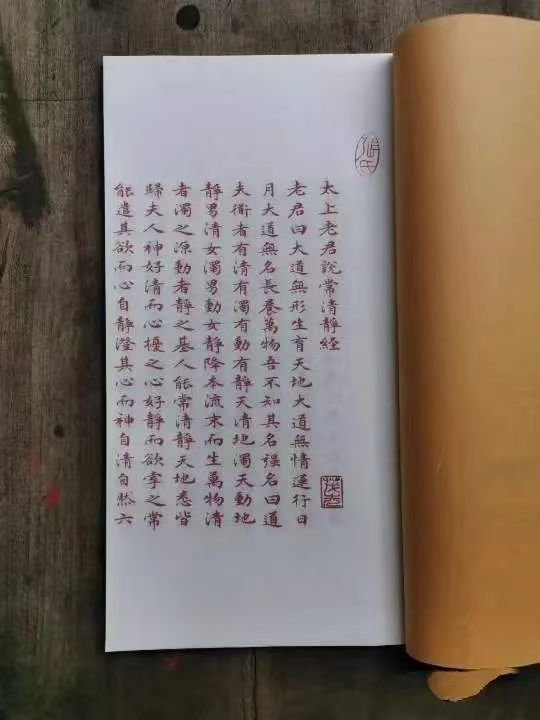 太上老君說常清靜經
老君曰大道無形生育天地大道無情運行日
月大道無名長養萬物吾不知其名强名曰道
夫衜者有清有濁有動有靜天清地濁天動地
靜男清女濁男動女靜降本流末而生萬物清
者濁之源動者靜之基人能常清靜天地悉皆
歸夫人神好清而心擾之心好靜而欲牽之常
能遣其欲而心自靜澄其心而神自清自然六